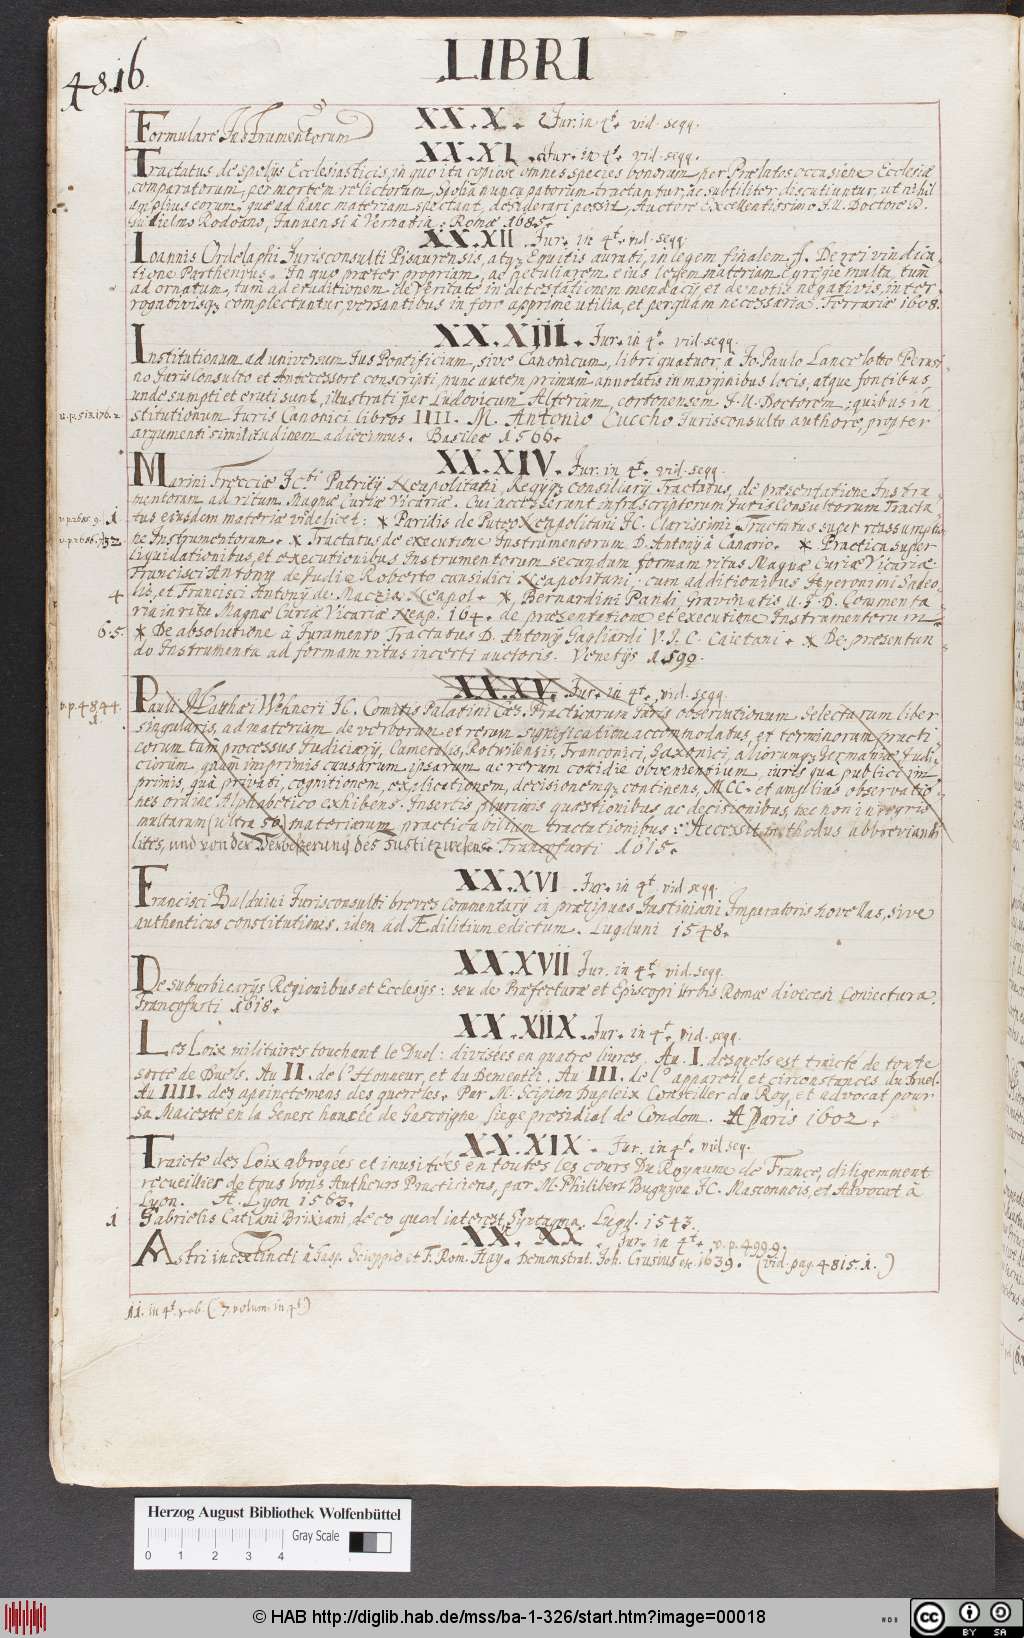 4816.
LIBRI
XX.X. Jur. in 4t. vid. seqq.
Formulare Instrumentorum
XX.XI. Jur. in 4t. vid. seqq.
Tractatus de spolijs Ecclesiasticis, in quo ita copiose omnes species bonorum per Prælatos occasione Ecclesiæ
comparatorum, per mortem relictorum, spolia nuncupatorum tractantur, ac subtiliter discutiuntur, ut nihil
amplius eorum, quæ ad hanc materiam spectant, desiderari possit, Auctore Excellentissimo J.U. Doctore D.
Rodoano, Januensi à Vernatia. Romæ 1685.
XX.XII Jur. in 4t. vid. seqq.
Ioannis Ordelaphi Jurisconsulti Pisaurensis, atq3 Equitis aurati, in legem finalem ff. De rei vindica-
tione Parthenius. In quo præter propriam, ac peculiarem eius legem materiam egregie multa, tum
ad ornatum, tum ad eruditionem de Veritate in detestationem mendacij et de notis negativis, inter-
rogativisq3 complectuntur, versantibus in foro apprimè utilia, et perquam necessaria. Ferrariæ 1608.
XX.XIII. Jur. in 4t. vid. seqq.
Institutionum ad universum Jus Pontificium, sive Canonicum, libri quatuor, à Jo. Paulo Lancelotto Perusi-
no Jurisconsulto et Antecessore conscripti, nunc autem primum annotatis in marginibus locis, atque fontibus
unde sumpti et eruti sunt, illustrati per Ludovicum Alferium, cortonensem J.U. Doctorem; quibus in
stitutionum Juris Canonici libros IIII. M. Antonio Cuccho Jurisconsulto authore, propter
argumenti similitudinem adiecimus. Basileæ 1566.
XX.XIV. Jur. in 4t. vid. seqq.
Marini Frecciæ JCti Patritij Neapolitani, Regijq3 consiliarij Tractatus, de præsentatione Instru-
mentorum ad ritum Magnæ Curiæ Vicariæ. Cui accesserunt infrascriptorum Juris Consultorum Tracta-
1 tus eiusdem materiæ videlicet: * Paridis de Puteo Neapolitani JC. Clarissimi Tractatus super reassumptio-
ne Instrumentorum. * Tractatus de executione Instrumentorum D. Antonij à Canario. * Practica super
liquidationibus, et executionibus Instrumentorum secundum formam ritus Magnæ Curiæ Vicariæ
Francisci Antony de Judice Roberto causidici Neapolitani; cum additionibus Hyeronimi
4 et Francisci Antonij de Neapol. * Bernardini Pandi Gravinatis U.J.D. Commenta
ria in ritu Magnæ Curiæ Vicariæ Neap. 164. de præsentatione et executione Instrumentorum
6.5. * De absolutione à Juramento Tractatus D. Antonij Gagliardi V.J.C. Caietani. * De præsentan
do Instrumentu ad formam ritus incerti auctoris. Venetijs 1599.
XX.XV. Jur. in 4t. vid. seqq.
v.p. 4844. 1.
Pauli Matthæi Wehneri JC. Comitis Palatini Cæs. Practicarum Juris observationum selectarum liber
singularis, ad materiam de verborum et rerum significatione accommodatus, et terminorum practi
corum tum processus Judiciarij, Cameralis, Rotwilensis, Franconici, Saxonici, aliorumq3 Germaniæ Judi-
ciorum quam imprimis causarum ipsarum ac rerum cottidie obvenientium, iuris qua publici im
primis, quà privati, cognitionem, explicationem, decisionemq3 continens, MCC. et amplius observatio-
nes ordine Alphabetico exhibens. Insertis plurimis quæstionibus ac decisionibus, nec non
multarum (ultra 50) materiarum practicabilium tractationibus: Accessit methodus abbreviandi
lites, und von der Verbesserung des Justitzwesens. Francofurti 1615.
XX.XVI Jur. in 4t. vid. seqq.
Francisci Balduini Jurisconsulti breves commentarij in præcipuas Justiniani Imperatoris novellas, sive
authenticas constitutiones. idem ad Ædilitium edictum. Lugduni 1548.
XX.XVII Jur. in 4t. vid. seqq.
De suburbicarijs Regionibus et Ecclesijs: seu de Præfecturæ et Episcopi Urbis Romæ diœcesi Coniectura.
Francofurti 1618.
XX.XIIX. Jur. in 4t. vid. seqq.
Les Loix militaires touchant le Duel: divisées en quatre livres. Au I. desquels est traicté de toute
sorte de Duels. Au II. de l'Honneur, et du Dementir. Au III. de l'appareil, et circonstances du Duel.
Au IIII. des appoinctemens des querelles. Par M. Scipion Dupleix Conseiller du Roy, et advocat pour
sa Maiesté en la Seneschaucée de Gascoigne, siege presidial de Condom. A Paris 1602.
XX.XIX. Jur. in 4t. vid. seq.
Traicte des Loix abrogées et inusitées en toutes les cours Du Royaume de France, diligemment
recueillies de tous bons Autheurs Practiciens, par M. Philibert Bugnyon JC. Masconnois, et Advocat à
Lyon. A Lyon 1563.
1 Gabrielis Catiani Brixiani, de eo quod interest, Syntagma. Lugd. 1543.
XX.XX. Jur. in 4t. v.p. 4999.
Astri inextincti à Gasp. Scioppio et F. Rom. Hay. Demonstrat. Joh. Crusius etc. 1639. (vid. pag. 4815. 1.)
11. in 4t. (7 volum. in 4t)
Herzog August Bibliothek Wolfenbüttel
Gray Scale
0 1 2 3 4
© HAB http://diglib.hab.de/mss/ba-1-326/start.htm?image=00018
WDB
cc BY SA